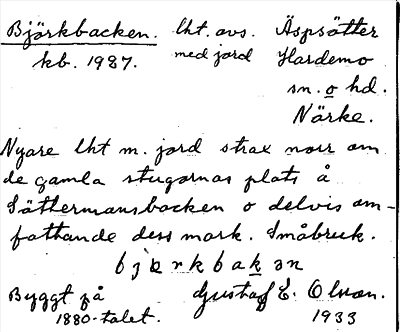 Björkbacken. lht. avs. Äspsätter
kb. 1987. med jord Hardemo
sn. o hd.
Närke.
Nyare lht m. jord strax norr om
de gamla stugornas plats å
Sättermansbacken o delvis om-
fattande dess mark. Småbruk.
bjærkbakən
Byggt på Gustaf E. Olson.
1880-talet. 1933